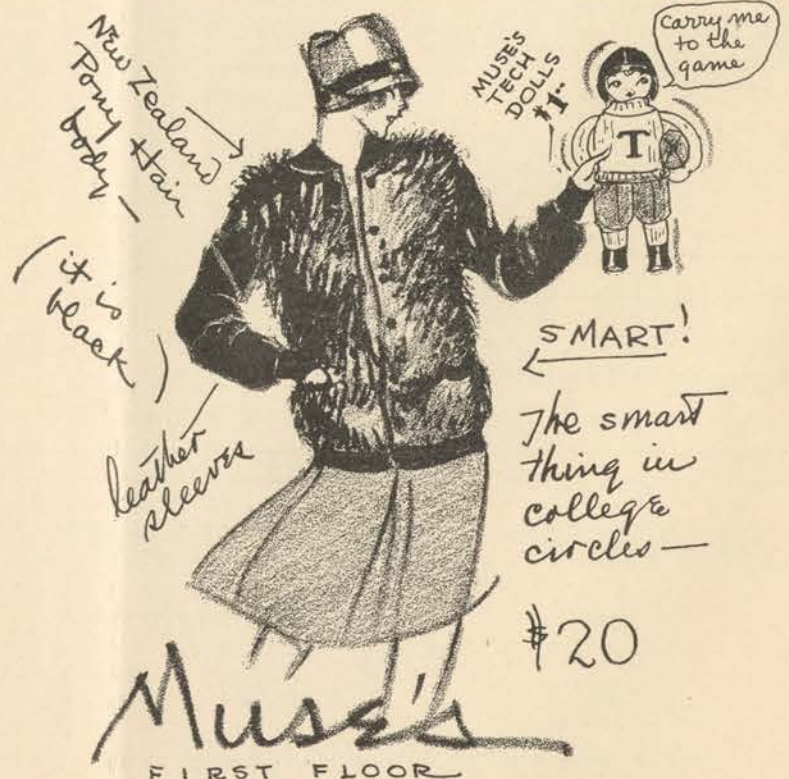 New Zealand
Pony Hair
body —
(it is
black)
leather
sleeves
MUSE'S
TECH
DOLLS
$1.00
carry me
to the
game
T
SMART!
The smart
thing in
college
circles —
$20
Muse's
FIRST FLOOR